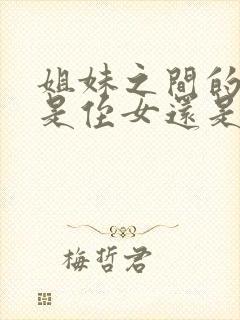 姐妹之間的
是侄女還是
梅哲君